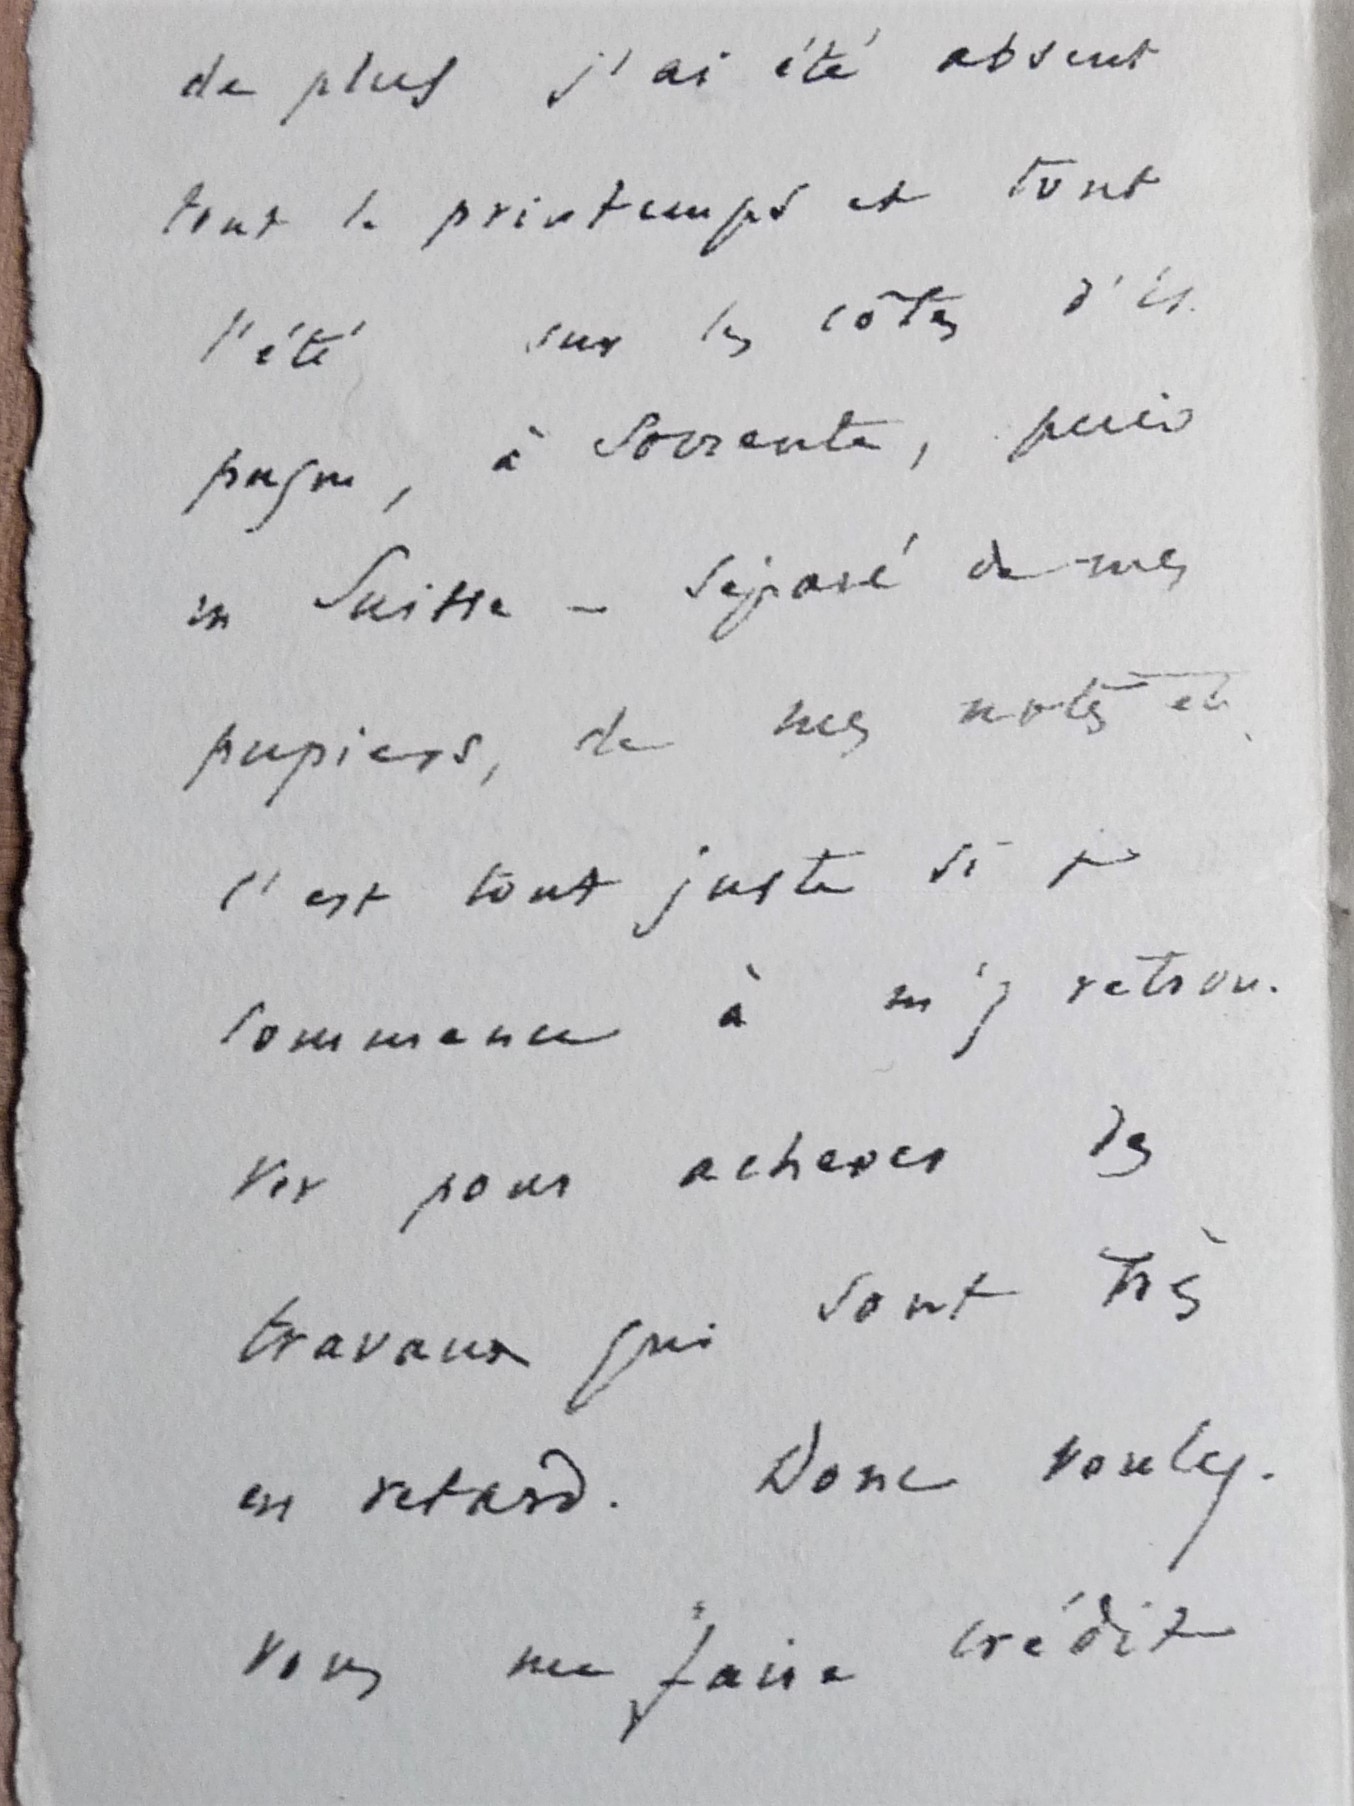 de plus j'ai été absent
tout le printemps et tout
l'été sur les côtes d'Es.
pagne, à Sorrente, puis
en Suisse – séparé de mes
papiers, de mes notes et
c'est tout juste si je
commence à m'y retrou.
ver pour achever des
travaux qui sont très
en retard. Donc voulez.
vous me faire crédit